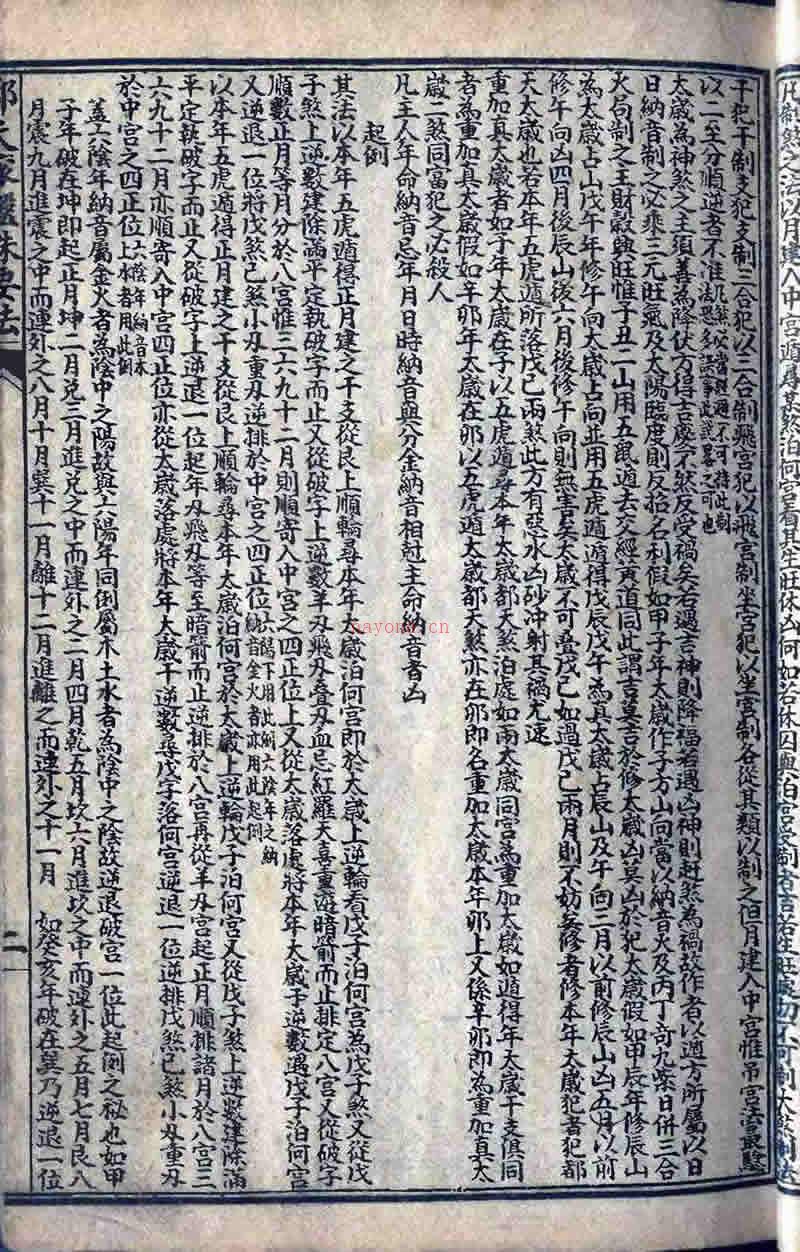 凡制煞之法以月建入中宮遁尋某煞泊何宮看其生旺休凶何如若休囚與泊宮受制者吉若生旺處切不可制大歲制法
干犯干制支犯支制三合犯以三合制飛宮犯以飛宮制坐宮犯以坐宮制各從其類以制之但月建入中宮惟吊宮法最驗
以二至分順逆者不准
太歲為神煞之主須善為降伏方得吉慶不然反受禍矣若遇吉神則降福若遇凶神則赶煞為禍故作者以遁方所屬以日
日納音制之必乘三元旺氣及太陽臨度則反招名利假如甲子年太歲作子方山向當以納音火及丙丁奇九紫日併三合
火局制之王財穀興旺惟子丑二山用五鼠遁去交經黃道同此謂吉莫吉於修太歲凶莫凶於犯太歲假如甲辰年修辰山
為太歲占山戊午年修午向大歲占向並用五虎遁遁得戊辰戊午為真太歲占辰山及午向三月以前修辰山凶五月以前
修午向凶四月後辰山後六月後修午向則無害矣太歲不可叠戊己如過戊己兩月則不妨矣修者修本年太歲犯者犯都
天大歲也若本年五虎遁所落戊己兩煞此方有惡水凶砂冲射其禍尤速
重加真太歲者如子年太歲在子以五虎遁尋本年太歲都天煞泊處如兩太歲同宮為重加太歲如遁得年太歲干支俱同
者為重加真太歲假如辛卯年太歲在卯以五虎遁大歲都天煞亦在卯即名重加太歲本年卯上又係辛卯即為重加真太
歲二煞同富犯之必殺人
凡主人年命納音忌年月日時納音與分金納音相尅主命納音者凶
起倒
其法以本年五虎遁得正月建之干支從艮上順輪尋本年太歲泊何宮即於太歲上逆輪看戊子泊何宮為戊子煞又從戊
子煞上逆數建除滿平定執破字而止又從破字上逆數羊刃飛刃叠刃血忌紅羅天喜重遊暗箭而止排定八宮又從破字
順數正月等月分於八宮惟三六九十二月則順寄入中宮之四正位上又從太歲落處將本年大歲子逆數遇戊子泊何宮
又逆退一位將戊煞己煞小刃重刃逆排於中宮之四正位 六陽下用此倒六陰年之納音金火者亦用此起倒
以本年五虎遁得正月建之干支從艮上順輪尋本年太歲泊何宮於太歲上逆輪戊子泊何宮又從戊子煞上逆數建除滿
平定執破字而正又從破字上逆退一位起年刃飛刃等至暗箭而止逆排於八宮再從羊刃宮起正月順排諸月於八宮三
六九十二月亦順寄入中宮四正位亦從太歲落處將本年大歲干逆數尋戊字落何宮逆退一位逆排戊煞己煞小刃重刃
於中宮之四正位 六陰年納音木土水者用此倒
蓋六陰年納音屬金火者為陰中之陽故與六陽年同倒屬木土水者為陰中之陰故逆退破宮一位此起倒之秘也如甲
子年破在坤即起正月坤二月兌三月進兌之中而連外之二月四月乾五月坎六月進坎之中而連外之五月七月艮八
月震九月進震之中而連外之八月十月巽十一月離十二月進離之而連外之十一月 如癸亥年破在巽乃逆退一位
二
nayona.cn